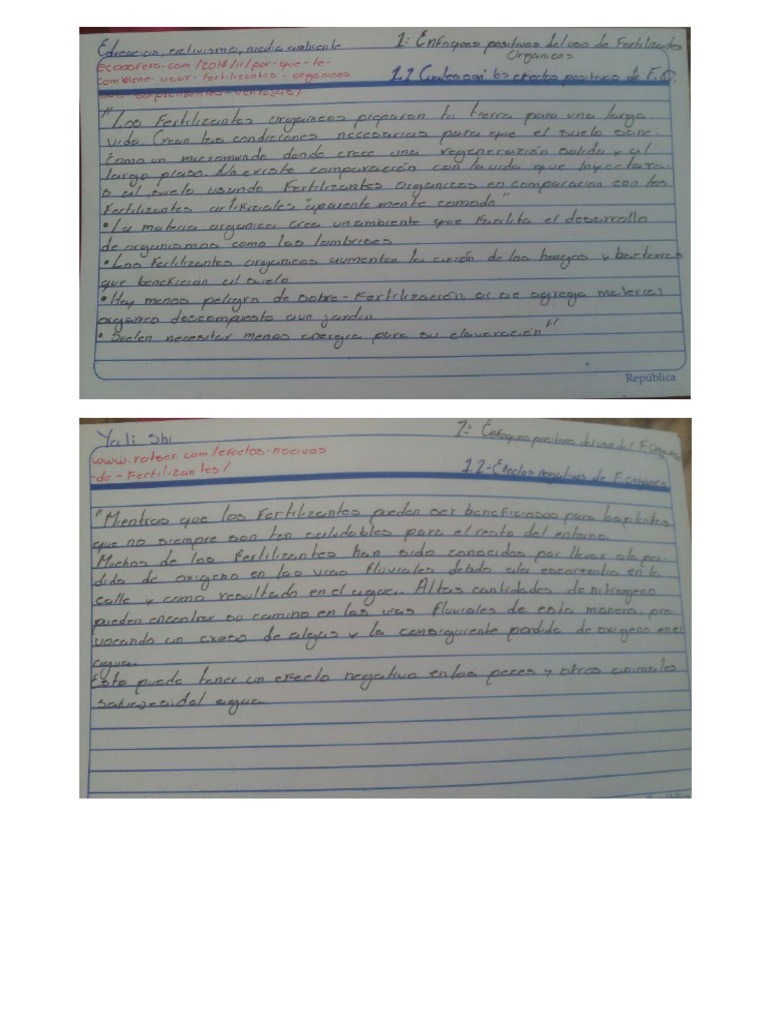 Educacion, activismo, media ambiente
1: Enfoques positivos del uso de Fertilizantes
Organicos
ecoosfera.com/2014/11/por-que-te-
conviene-usar-fertilizantes-organicos
1.1 Cuales son los efectos positivos de F.O.
"Los Fertilizantes Organicos preparan la tierra para una larga
vida. Crean las condiciones necesarias para que el suelo
como un micromundo donde crece una regeneración solida y al
largo plaso. No existe comparación con la vida que
al suelo usando Fertilizantes Organicos en comparación con los
Fertilizantes artificiales "aparente mente comoda"
• La materia organica crea un ambiente que facilita el desarrollo
de organismos como las lombrises
• Los Fertilizantes organicos aumentan la de los hongos y
que benefician al suelo
• Hay menos peligro de sobre-Fertilización si se agrega material
organico descompuesto a un jardin
• Suelen necesitar menos energia para su elavoración"
República
Yali Shi
1: Enfoques positivos del uso del F.
www.rotser.com/efectos-nocivos
-de-Fertilizantes/
1.2-Efectos negativos de F.organico
"Mientras que los Fertilizantes pueden ser beneficiosos para las
que no siempre son tan saludables para el resto del entorno.
Muchos de los Fertilizantes han sido conocidos por llevar a la per-
dida de oxigeno en las vias fluviales debido a la escorrentia en la
calle y como resultado en el agua. Altas cantidades de nitrogeno
pueden encontrar su camino en las vias fluviales de esta manera, pro-
vocando un exceso de algas y la consiguiente perdida de oxigeno en el
agua.
Esto puede tener un efecto negativo en los peces y otros animales
del agua